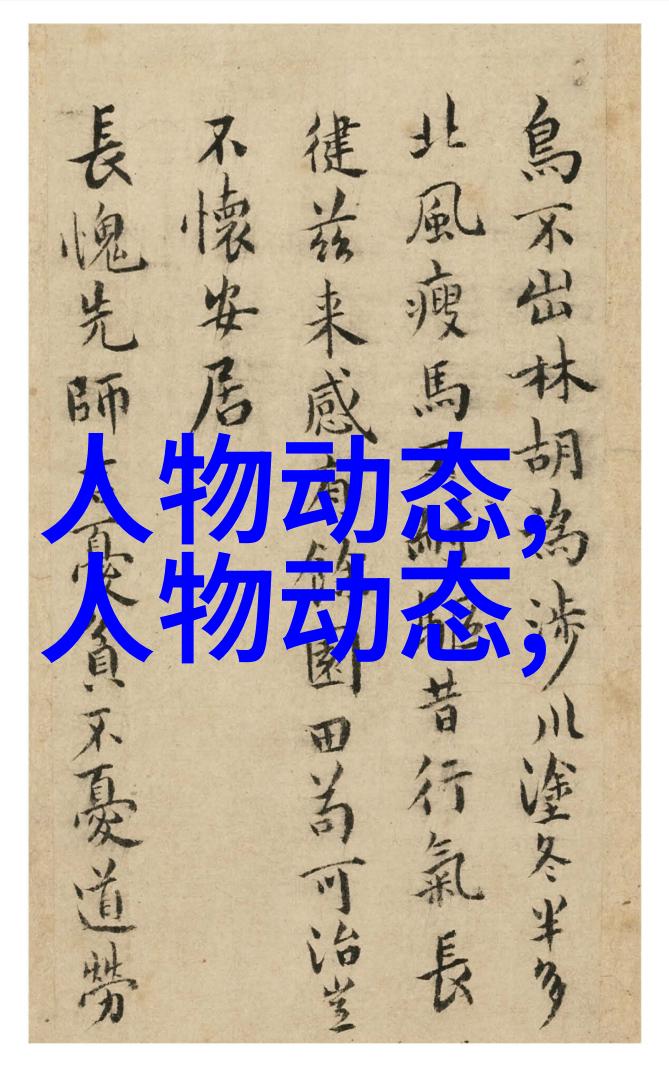 鳥不出林胡為涉川塗冬半多
北風瘦馬不耐驅昔行氣長
健茲来感 園田苟可治豈
不懷安居
長愧先師 憂貧不憂道勞
人物动态,
人物动态,